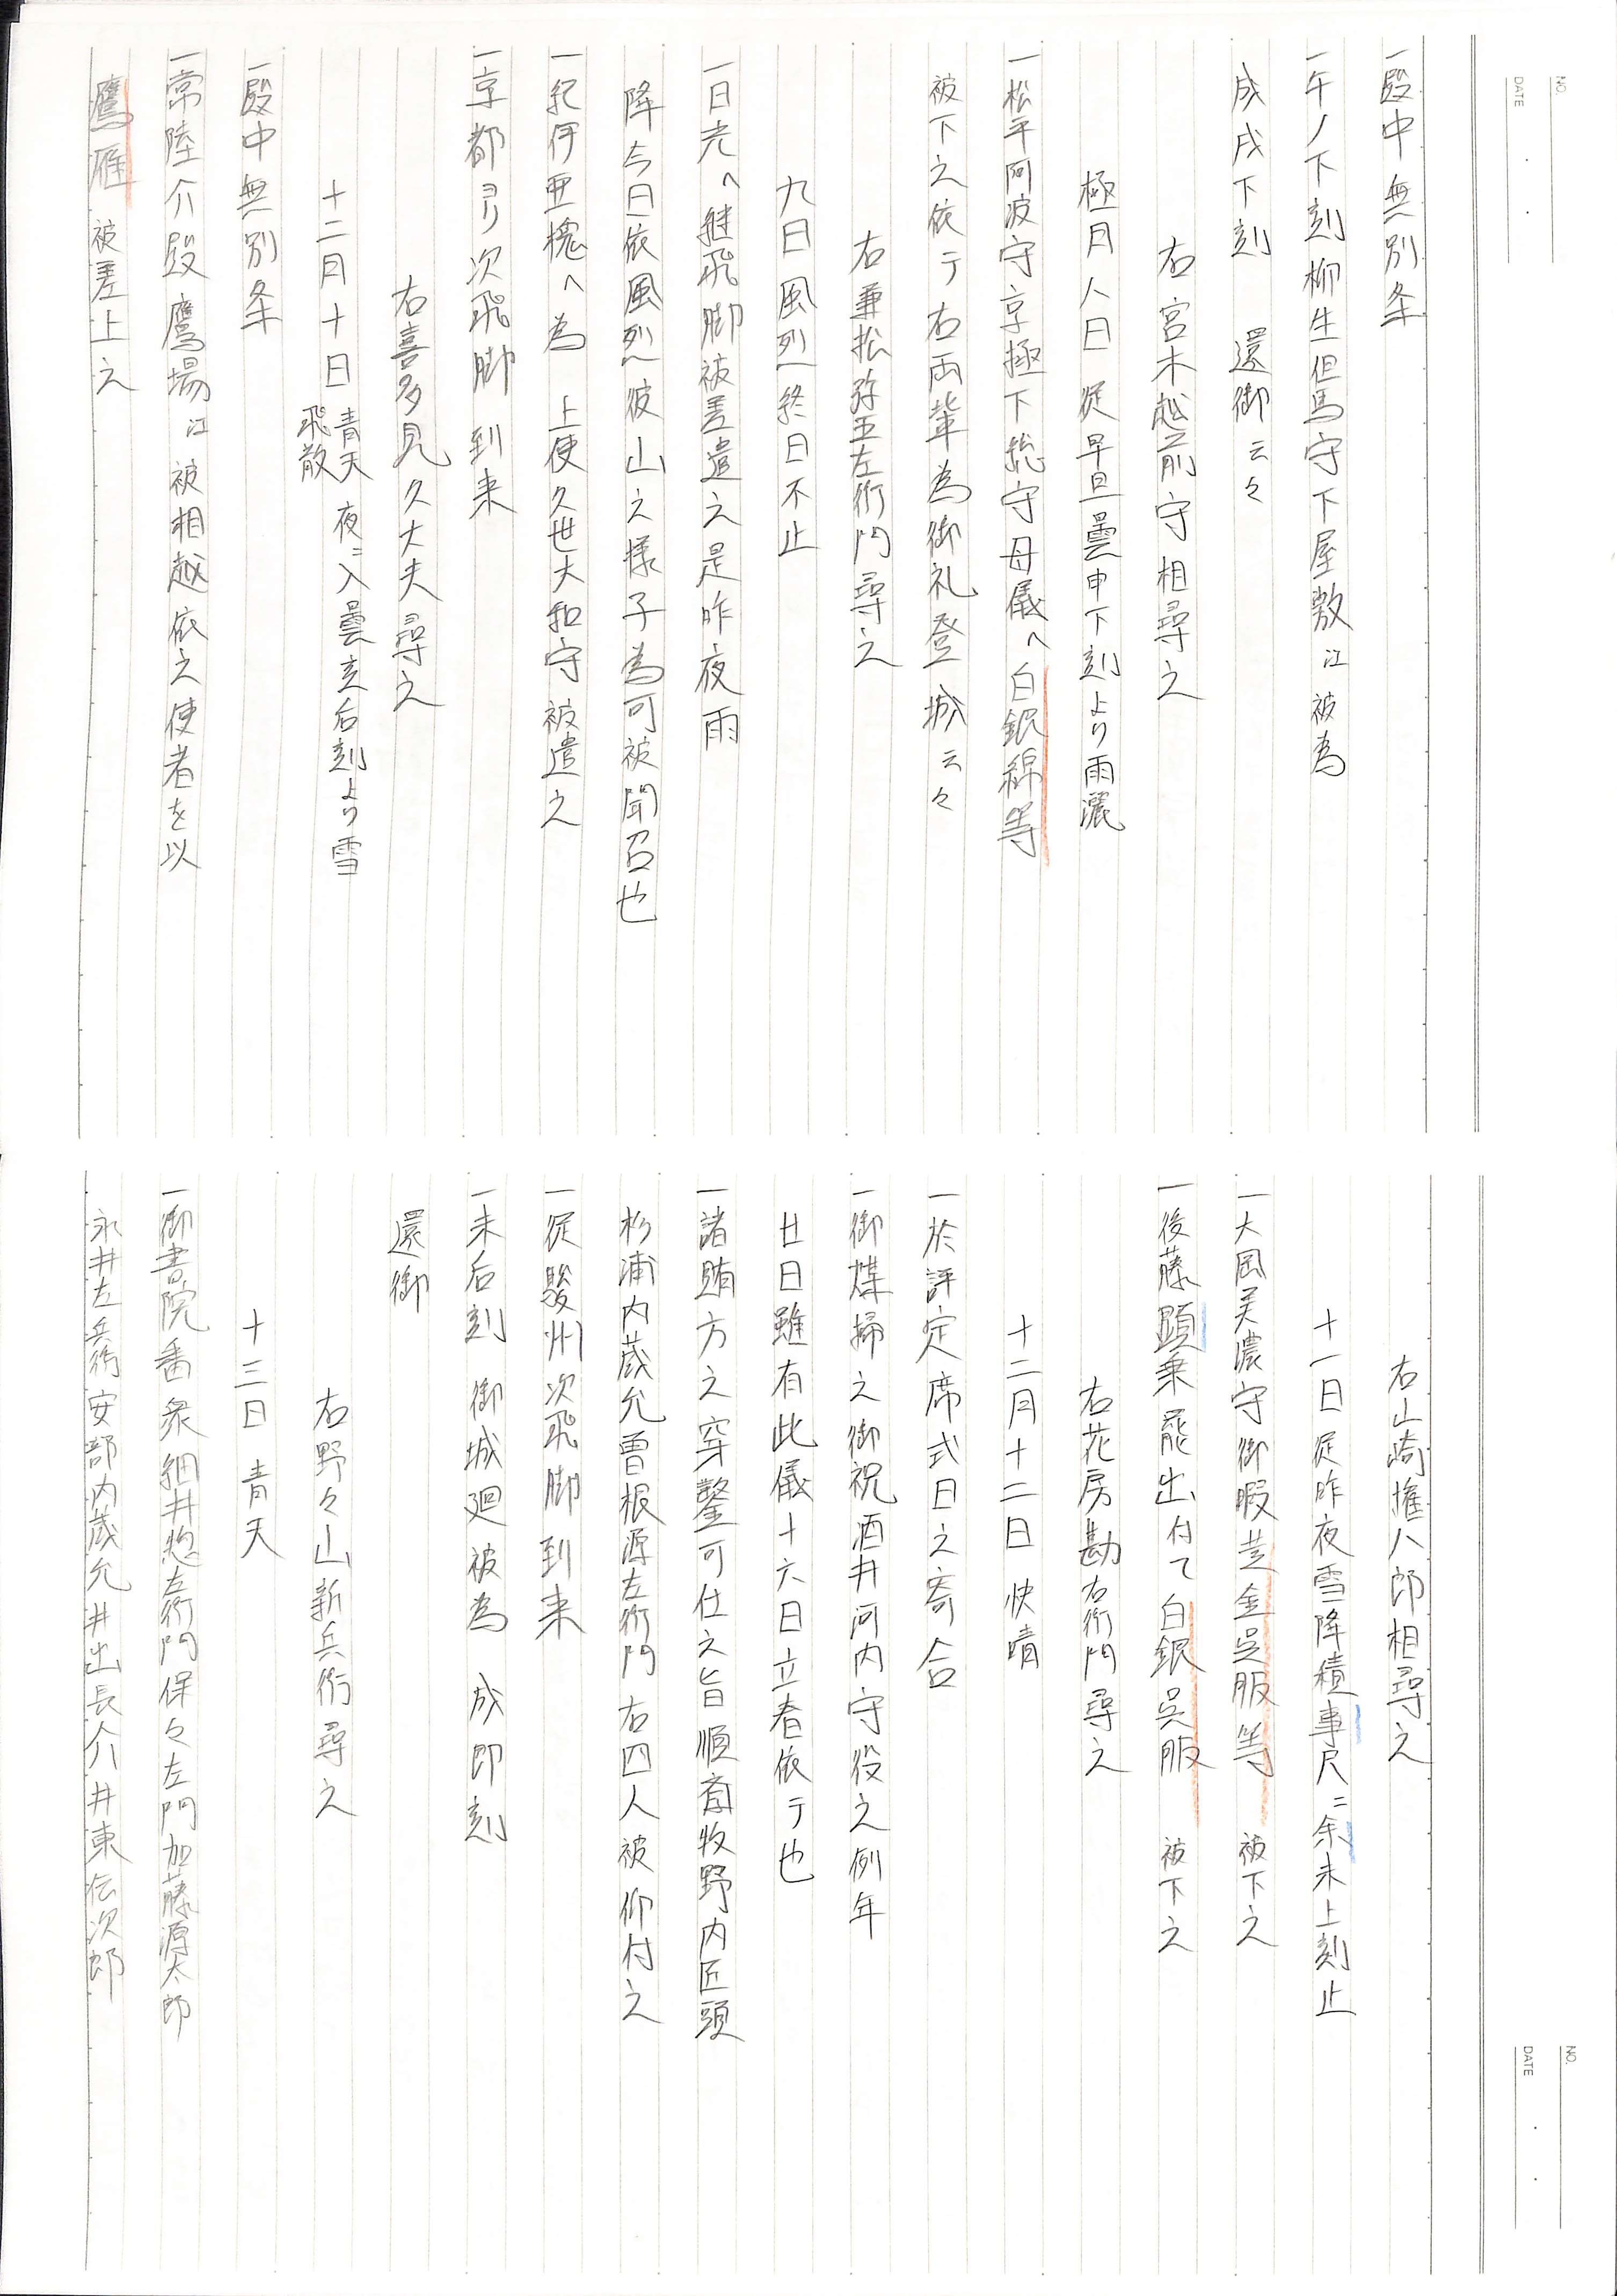 NO.
DATE
一殿中無別条
一午ノ下刻柳生但馬守下屋敷江被為
成戌下刻 還御云々
右宮木越前守相尋之
極月八日 従早旦曇申下刻より雨灑
一松平阿波守京極下総守母儀へ白銀綿等
被下之依テ右両輩為御礼登城云々
右兼松弥五左衛門尋之
九日風烈終日不止
一日光へ継飛脚被差遣之是昨夜雨
降今日依風烈彼山之様子為可被聞召也
一紀伊亜槐へ為 上使久世大和守被遣之
一京都ヨリ次飛脚到来
右喜多見久大夫尋之
十二月十日 青天 夜ニ入曇亥后刻より雪
飛散
一殿中無別条
一常陸介殿鷹場江被相越依之使者を以
鷹雁 被差上之
NO.
DATE
右山崎権八郎相尋之
十一日従昨夜雪降積事尺ニ余未上刻止
一大岡美濃守御暇黄金呉服等 被下之
一後藤顕乗罷出付て白銀呉服 被下之
右花房勘右衛門尋之
十二月十二日快晴
一於評定席式日之寄合
一御煤掃之御祝酒井河内守役之例年
廿日雖有此儀十六日立春依テ也
一諸賄方之穿鑿可仕之旨順斎牧野内匠頭
杉浦内蔵允曽根源左衛門右四人被仰付之
一従駿州次飛脚到来
一未后刻 御城廻被為 成即刻
還御
右野々山新兵衛尋之
十三日 青天
一御書院番衆細井惣左衛門保々左門加藤源太郎
永井左兵衛安部内蔵允井出長介井東伝次郎